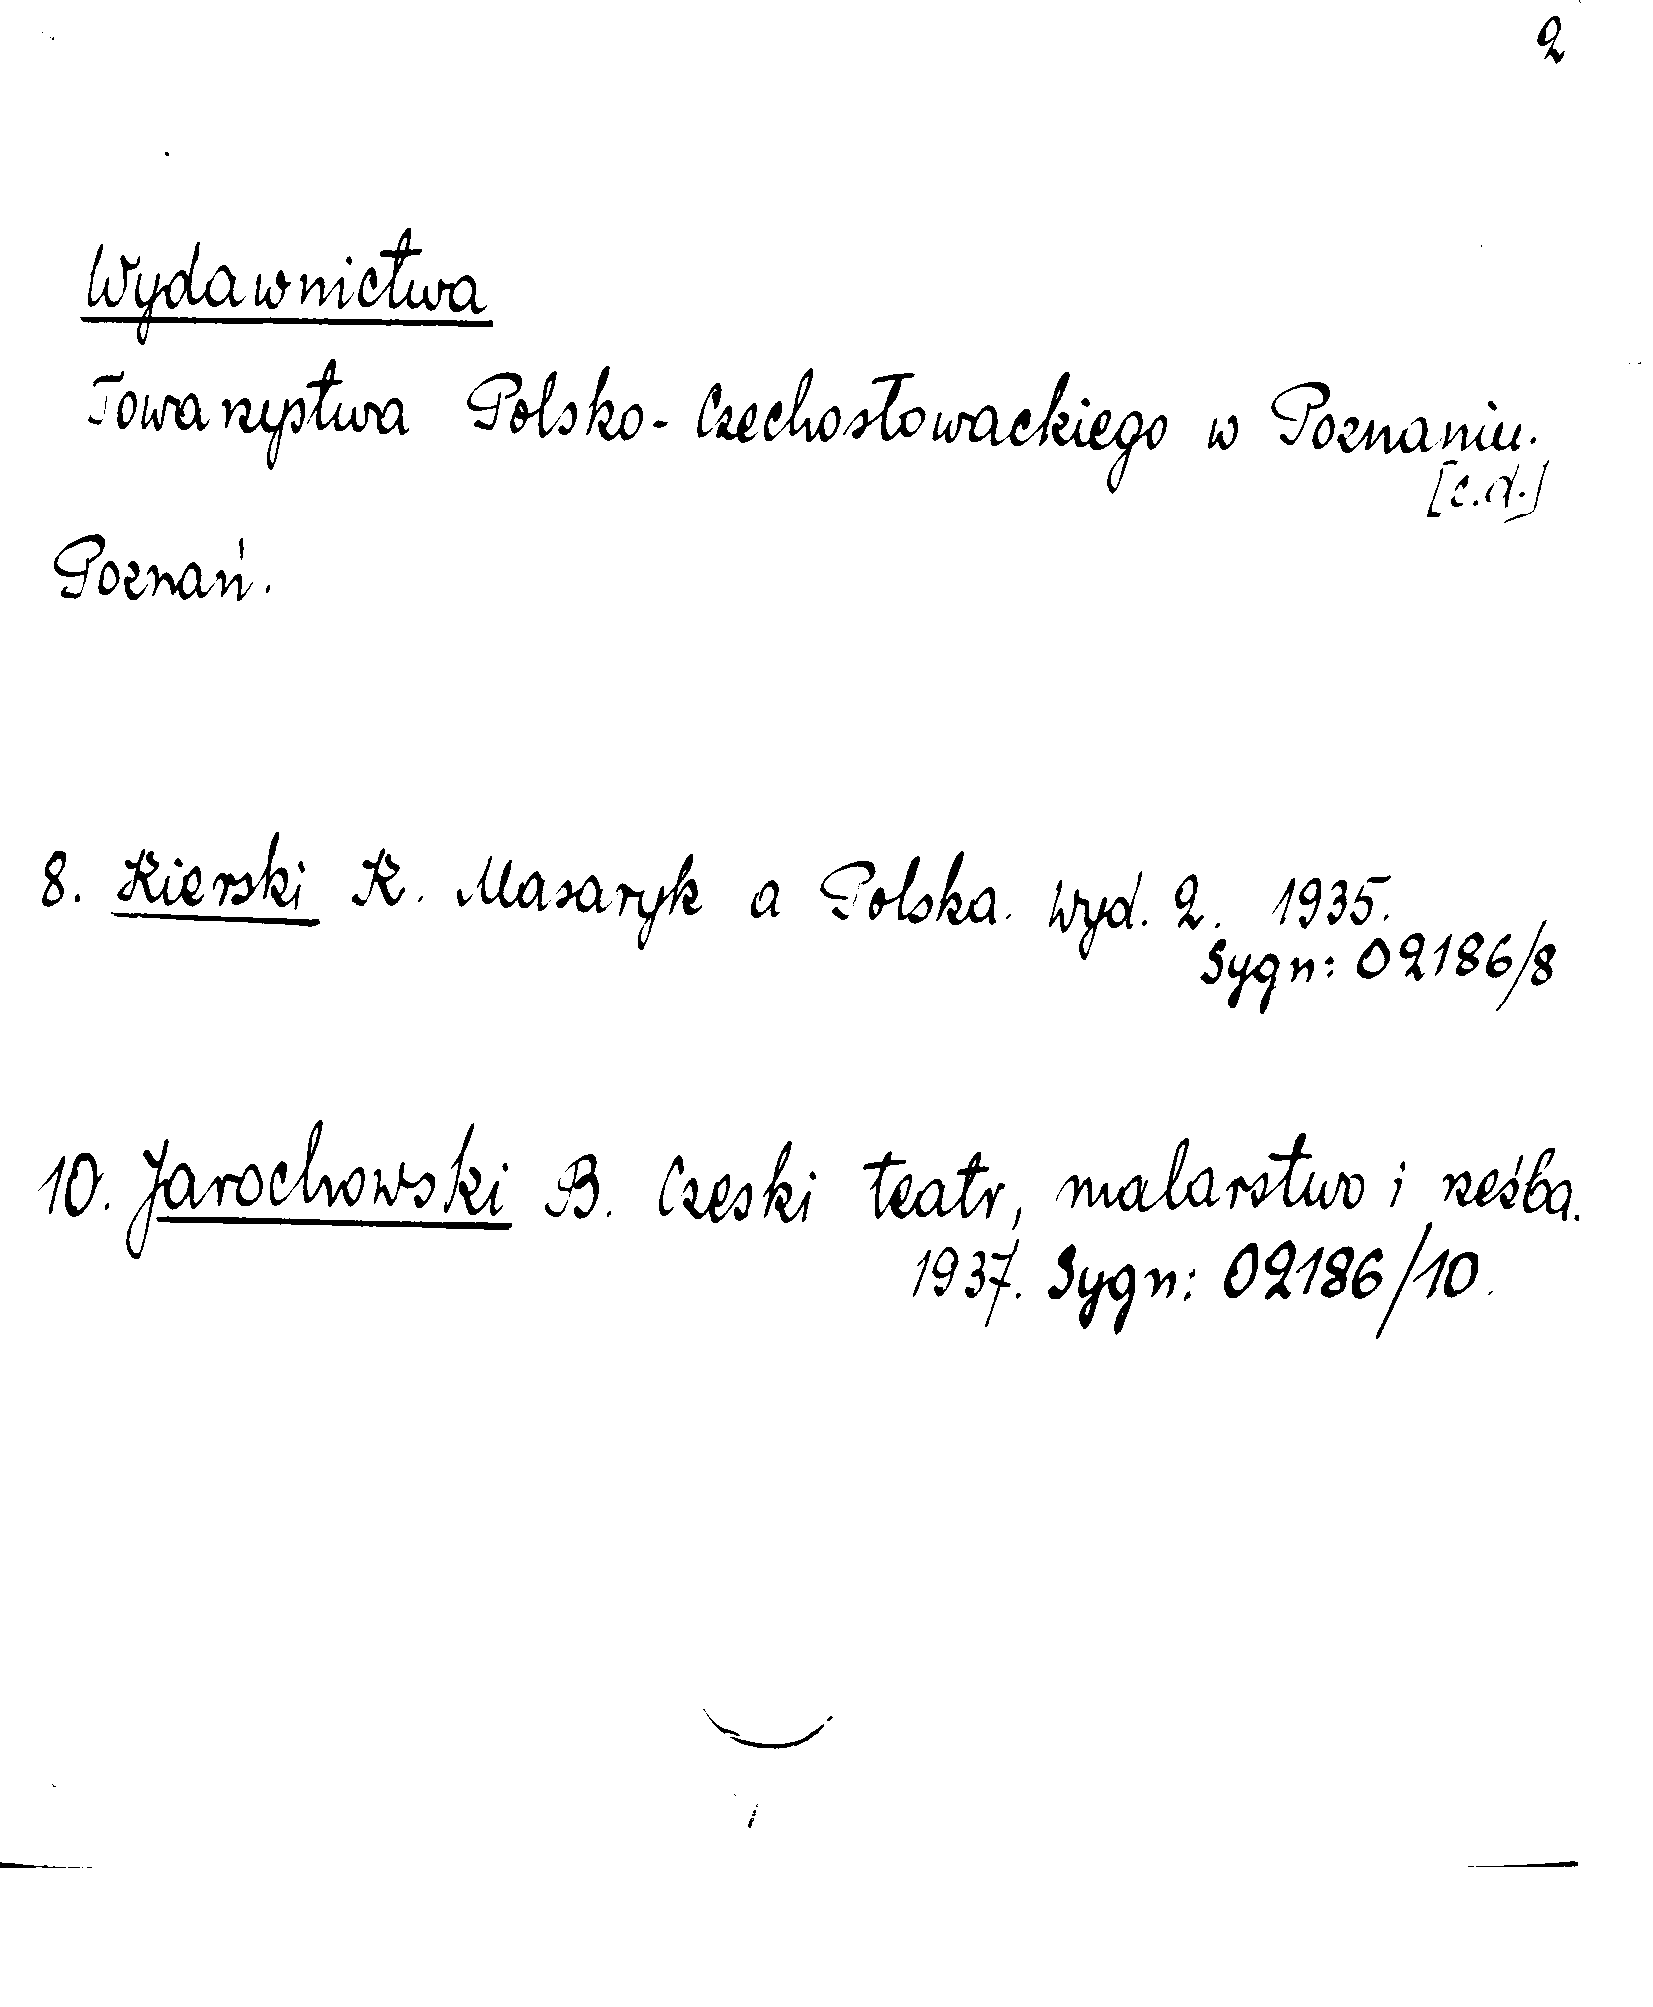 2
Wydawnictwa
Towarzystwa Polsko-Czechosłowackiego w Poznaniu.
[c.d.]
Poznań.
8. Kierski K. Masaryk a Polska. Wyd. 2. 1935.
Sygn: 02186/8
10. Jarochowski B. Czeski teatr, malarstwo i rzeźba.
1937. Sygn: 02186/10.